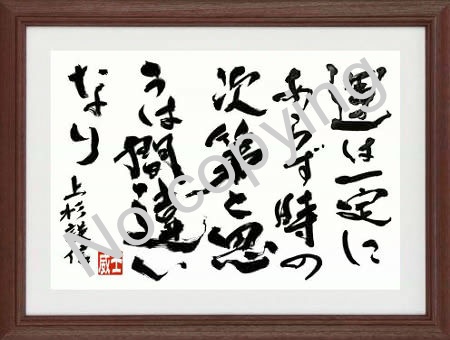 運は一定に
あらず時の
次第と思
うは間違い
なり
上杉謙信
威士
No copying